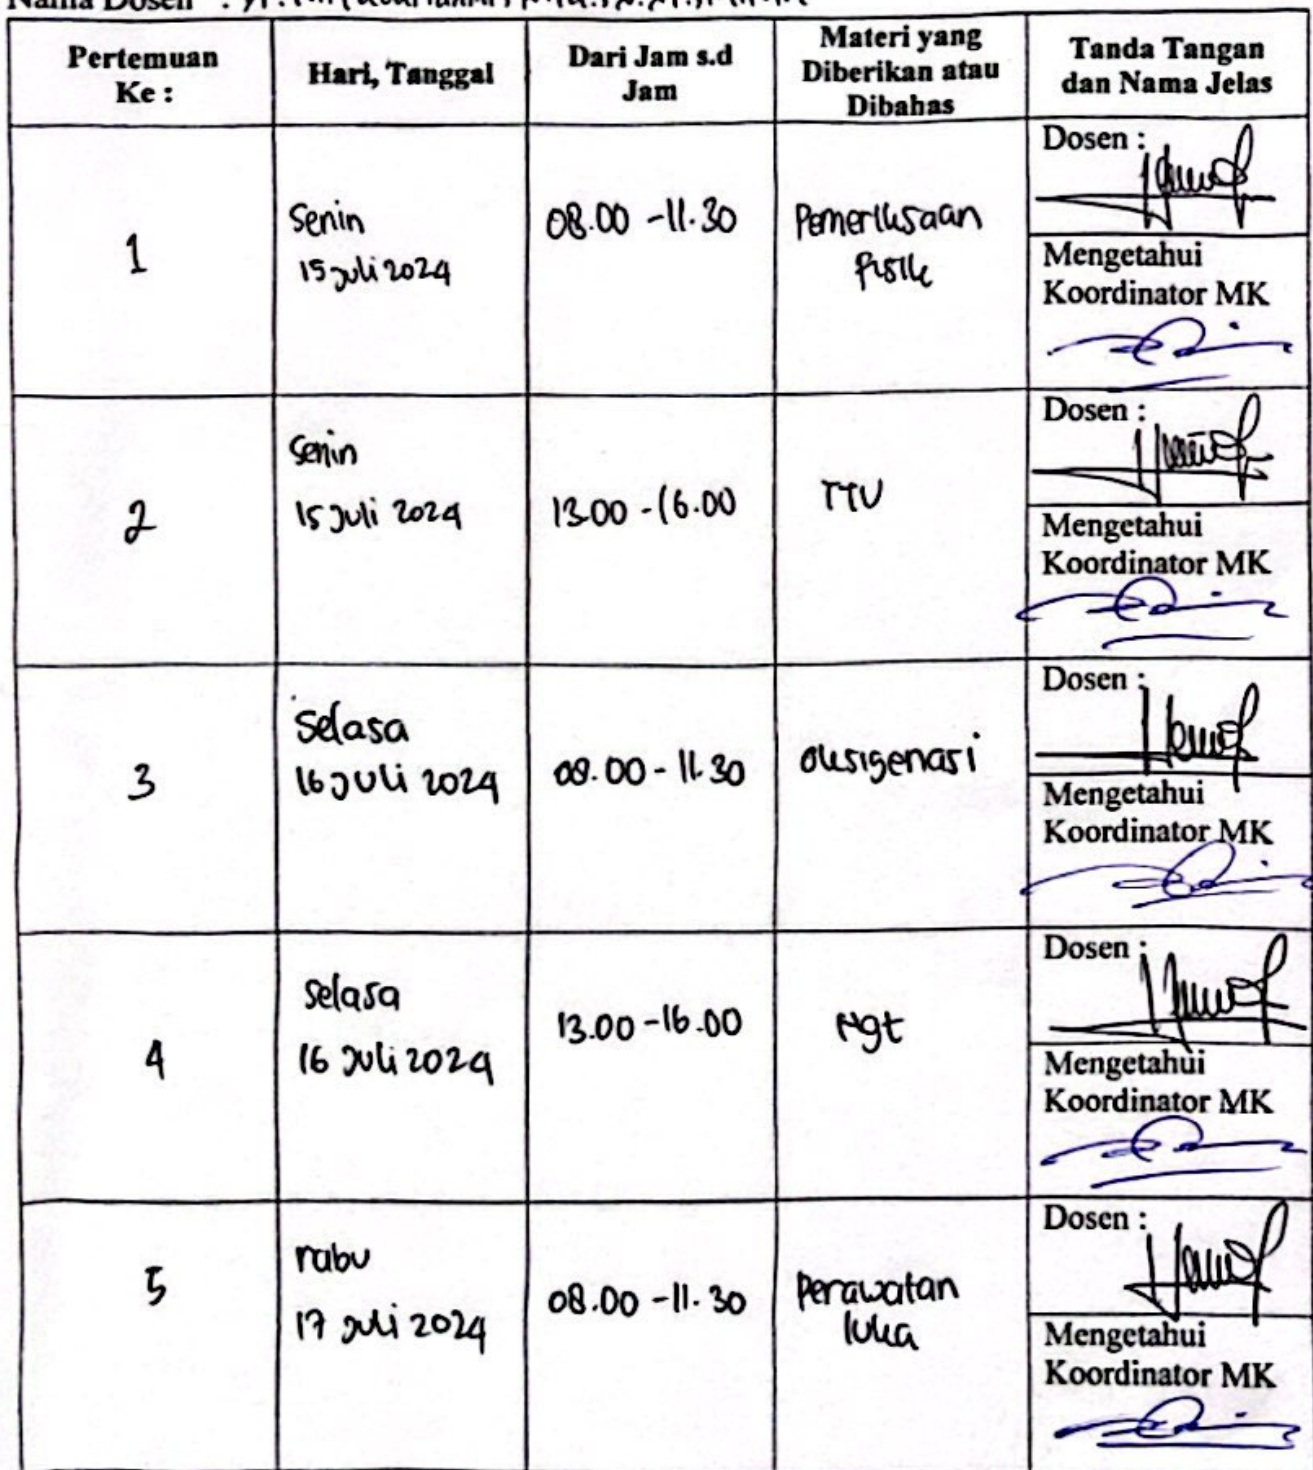 Nama Dosen :
Pertemuan Ke :
Hari, Tanggal
Dari Jam s.d Jam
Materi yang Diberikan atau Dibahas
Tanda Tangan dan Nama Jelas
1
Senin
15 Juli 2024
08.00 - 11.30
Pemeriksaan
fisik
Dosen :
Mengetahui
Koordinator MK
2
Senin
15 Juli 2024
13.00 - 16.00
TTV
Dosen :
Mengetahui
Koordinator MK
3
Selasa
16 Juli 2024
08.00 - 11.30
oksigenasi
Dosen :
Mengetahui
Koordinator MK
4
Selasa
16 Juli 2024
13.00 - 16.00
Ngt
Dosen :
Mengetahui
Koordinator MK
5
rabu
17 Juli 2024
08.00 - 11.30
Perawatan
luka
Dosen :
Mengetahui
Koordinator MK